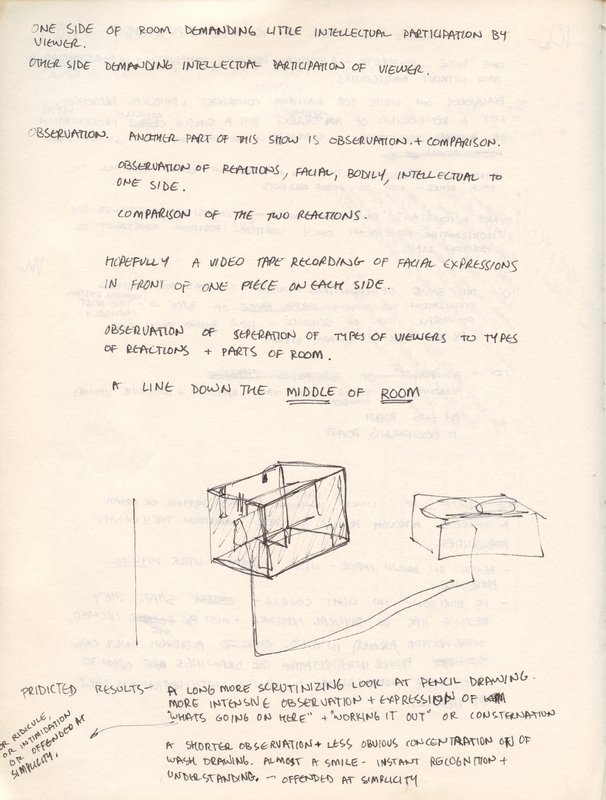 ONE SIDE OF ROOM DEMANDING LITTLE INTELLECTUAL PARTICIPATION BY
VIEWER.
OTHER SIDE DEMANDING INTELLECTUAL PARTICIPATION OF VIEWER.
OBSERVATION. ANOTHER PART OF THIS SHOW IS OBSERVATION. + COMPARISON.
OBSERVATION OF REACTIONS, FACIAL, BODILY, INTELLECTUAL TO
ONE SIDE.
COMPARISON OF THE TWO REACTIONS.
HOPEFULLY A VIDEO TAPE RECORDING OF FACIAL EXPRESSIONS
IN FRONT OF ONE PIECE ON EACH SIDE.
OBSERVATION OF SEPERATION OF TYPES OF VIEWERS TO TYPES
OF REACTIONS + PARTS OF ROOM.
A LINE DOWN THE MIDDLE OF ROOM
PRIDICTED RESULTS- A LONG MORE SCRUTINIZING LOOK AT PENCIL DRAWING.
MORE INTENSIVE OBSERVATION + EXPRESSION OF
"WHATS GOING ON HERE" + "WORKING IT OUT" OR CONSTERNATION
OR RIDICULE,
OR INTIMIDATION
OR OFFENDED AT
SIMPLICITY.
A SHORTER OBSERVATION + LESS OBVIOUS CONCENTRATION OF
WASH DRAWING. ALMOST A SMILE - INSTANT RECOGNITION +
UNDERSTANDING. - OFFENDED AT SIMPLICITY